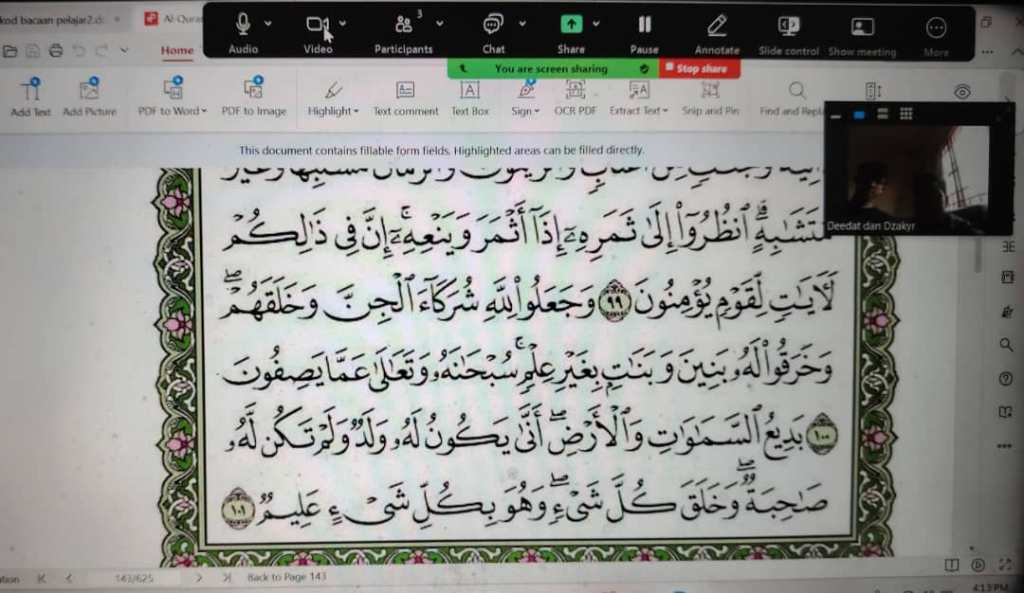 kod bacaan pelajar2.d
Al-Qura
3
Audio
Video
Participants
Chat
Share
Pause
Annotate
Slide control
Show meeting
More
You are screen sharing
Stop share
Home
Add Text
Add Picture
PDF to Word
PDF to Image
Highlight
Text comment
Text Box
Sign
OCR PDF
Extract Text
Snip and Pin
Find and Repla
This document contains fillable form fields. Highlighted areas can be filled directly.
Deedat dan Dzakyr
مُتَشَٰبِهٍۗ ٱنظُرُوٓا۟ إِلَىٰ ثَمَرِهِۦٓ إِذَآ أَثْمَرَ وَيَنْعِهِۦٓۚ إِنَّ فِى ذَٰلِكُمْ
لَءَايَٰتٍ لِّقَوْمٍ يُؤْمِنُونَ ٩٩ وَجَعَلُوا۟ لِلَّهِ شُرَكَآءَ ٱلْجِنَّ وَخَلَقَهُمْۖ
وَخَرَقُوا۟ لَهُۥ بَنِينَ وَبَنَٰتٍۭ بِغَيْرِ عِلْمٍۚ سُبْحَٰنَهُۥ وَتَعَٰلَىٰ عَمَّا يَصِفُونَ
١٠٠ بَدِيعُ ٱلسَّمَٰوَٰتِ وَٱلْأَرْضِۖ أَنَّىٰ يَكُونُ لَهُۥ وَلَدٌ وَلَمْ تَكُن لَّهُۥ
صَٰحِبَةٌۖ وَخَلَقَ كُلَّ شَىْءٍۖ وَهُوَ بِكُلِّ شَىْءٍ عَلِيمٌ ١٠١
ation
143/625
Back to Page 143
4:13 PM